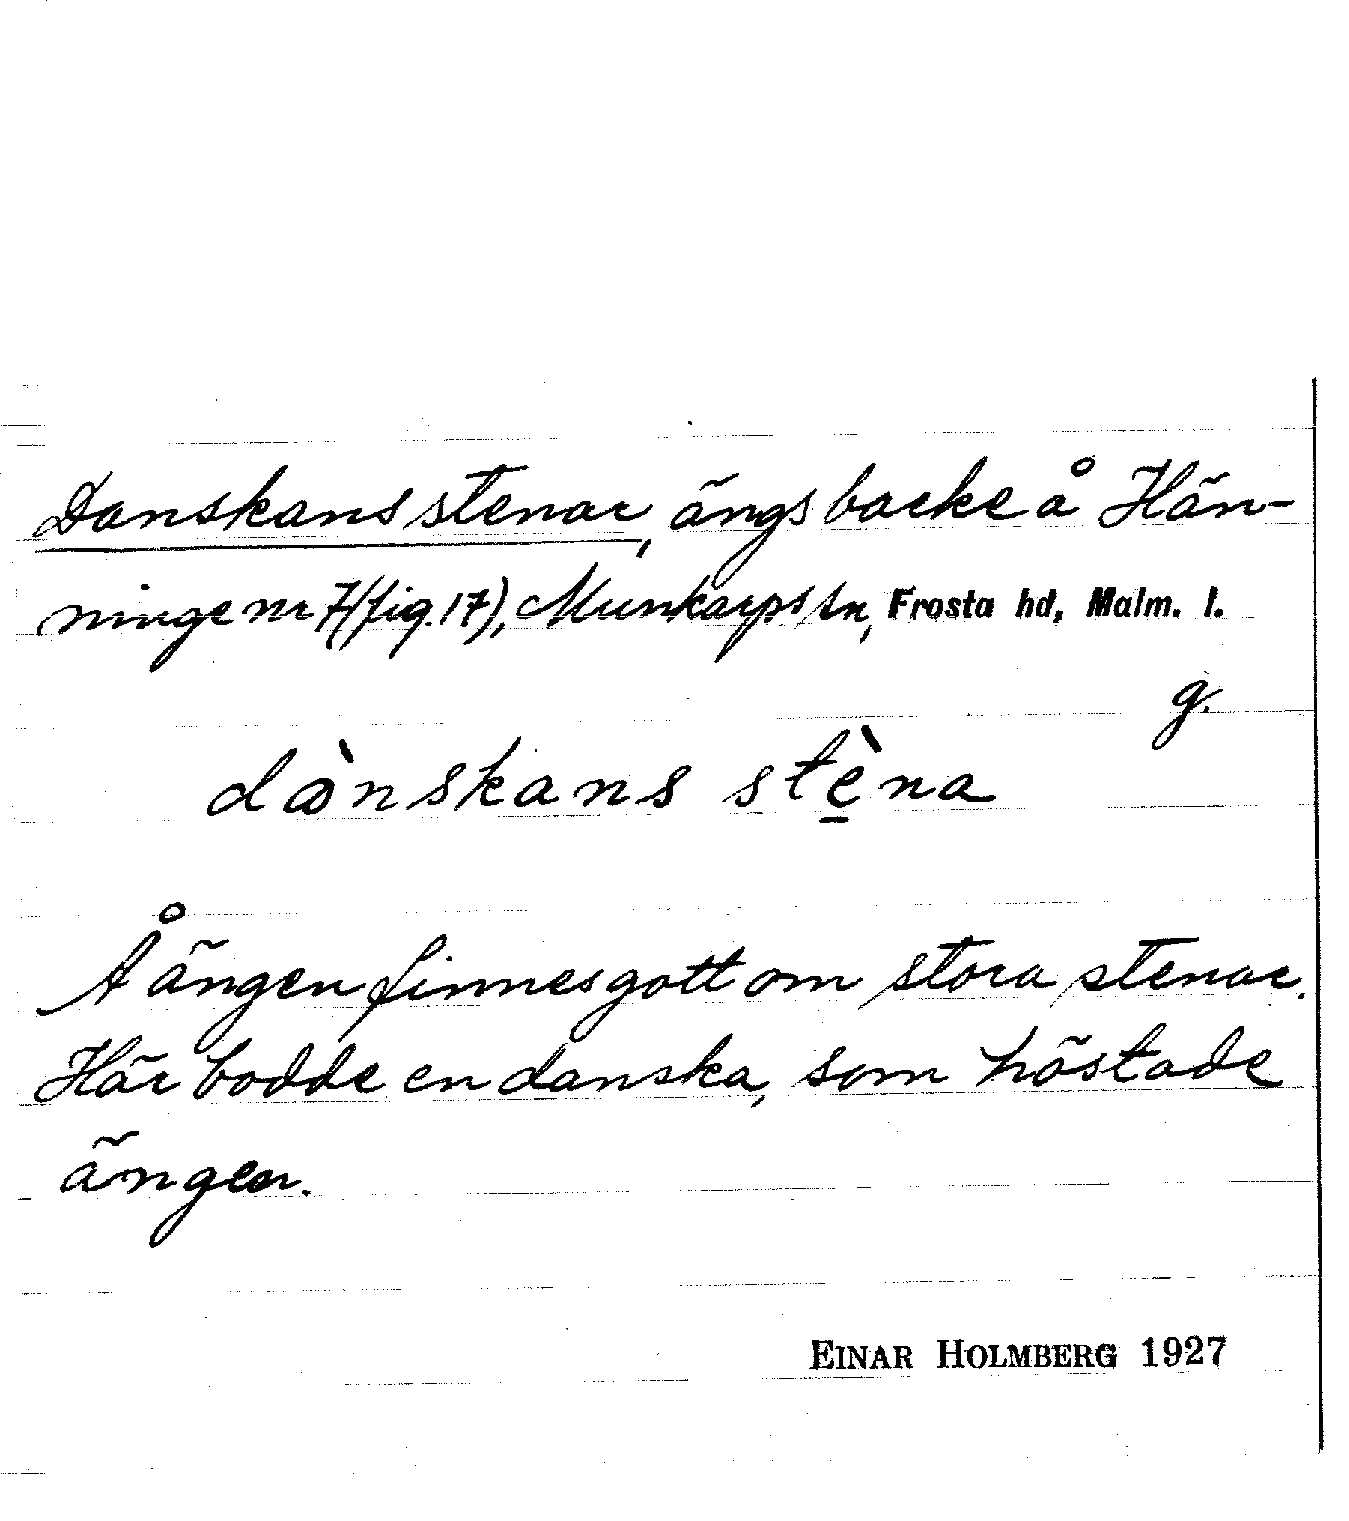 Danskans stenar, ängsbacke å Hän-
ninge nr 7 (fig. 17), Munkarps sn, Frosta hd, Malm. l.
g.
dànskans stè̱na
Å ängen finnes gott om stora stenar.
Här bodde en danska, som höstade
ängen.
EINAR HOLMBERG 1927